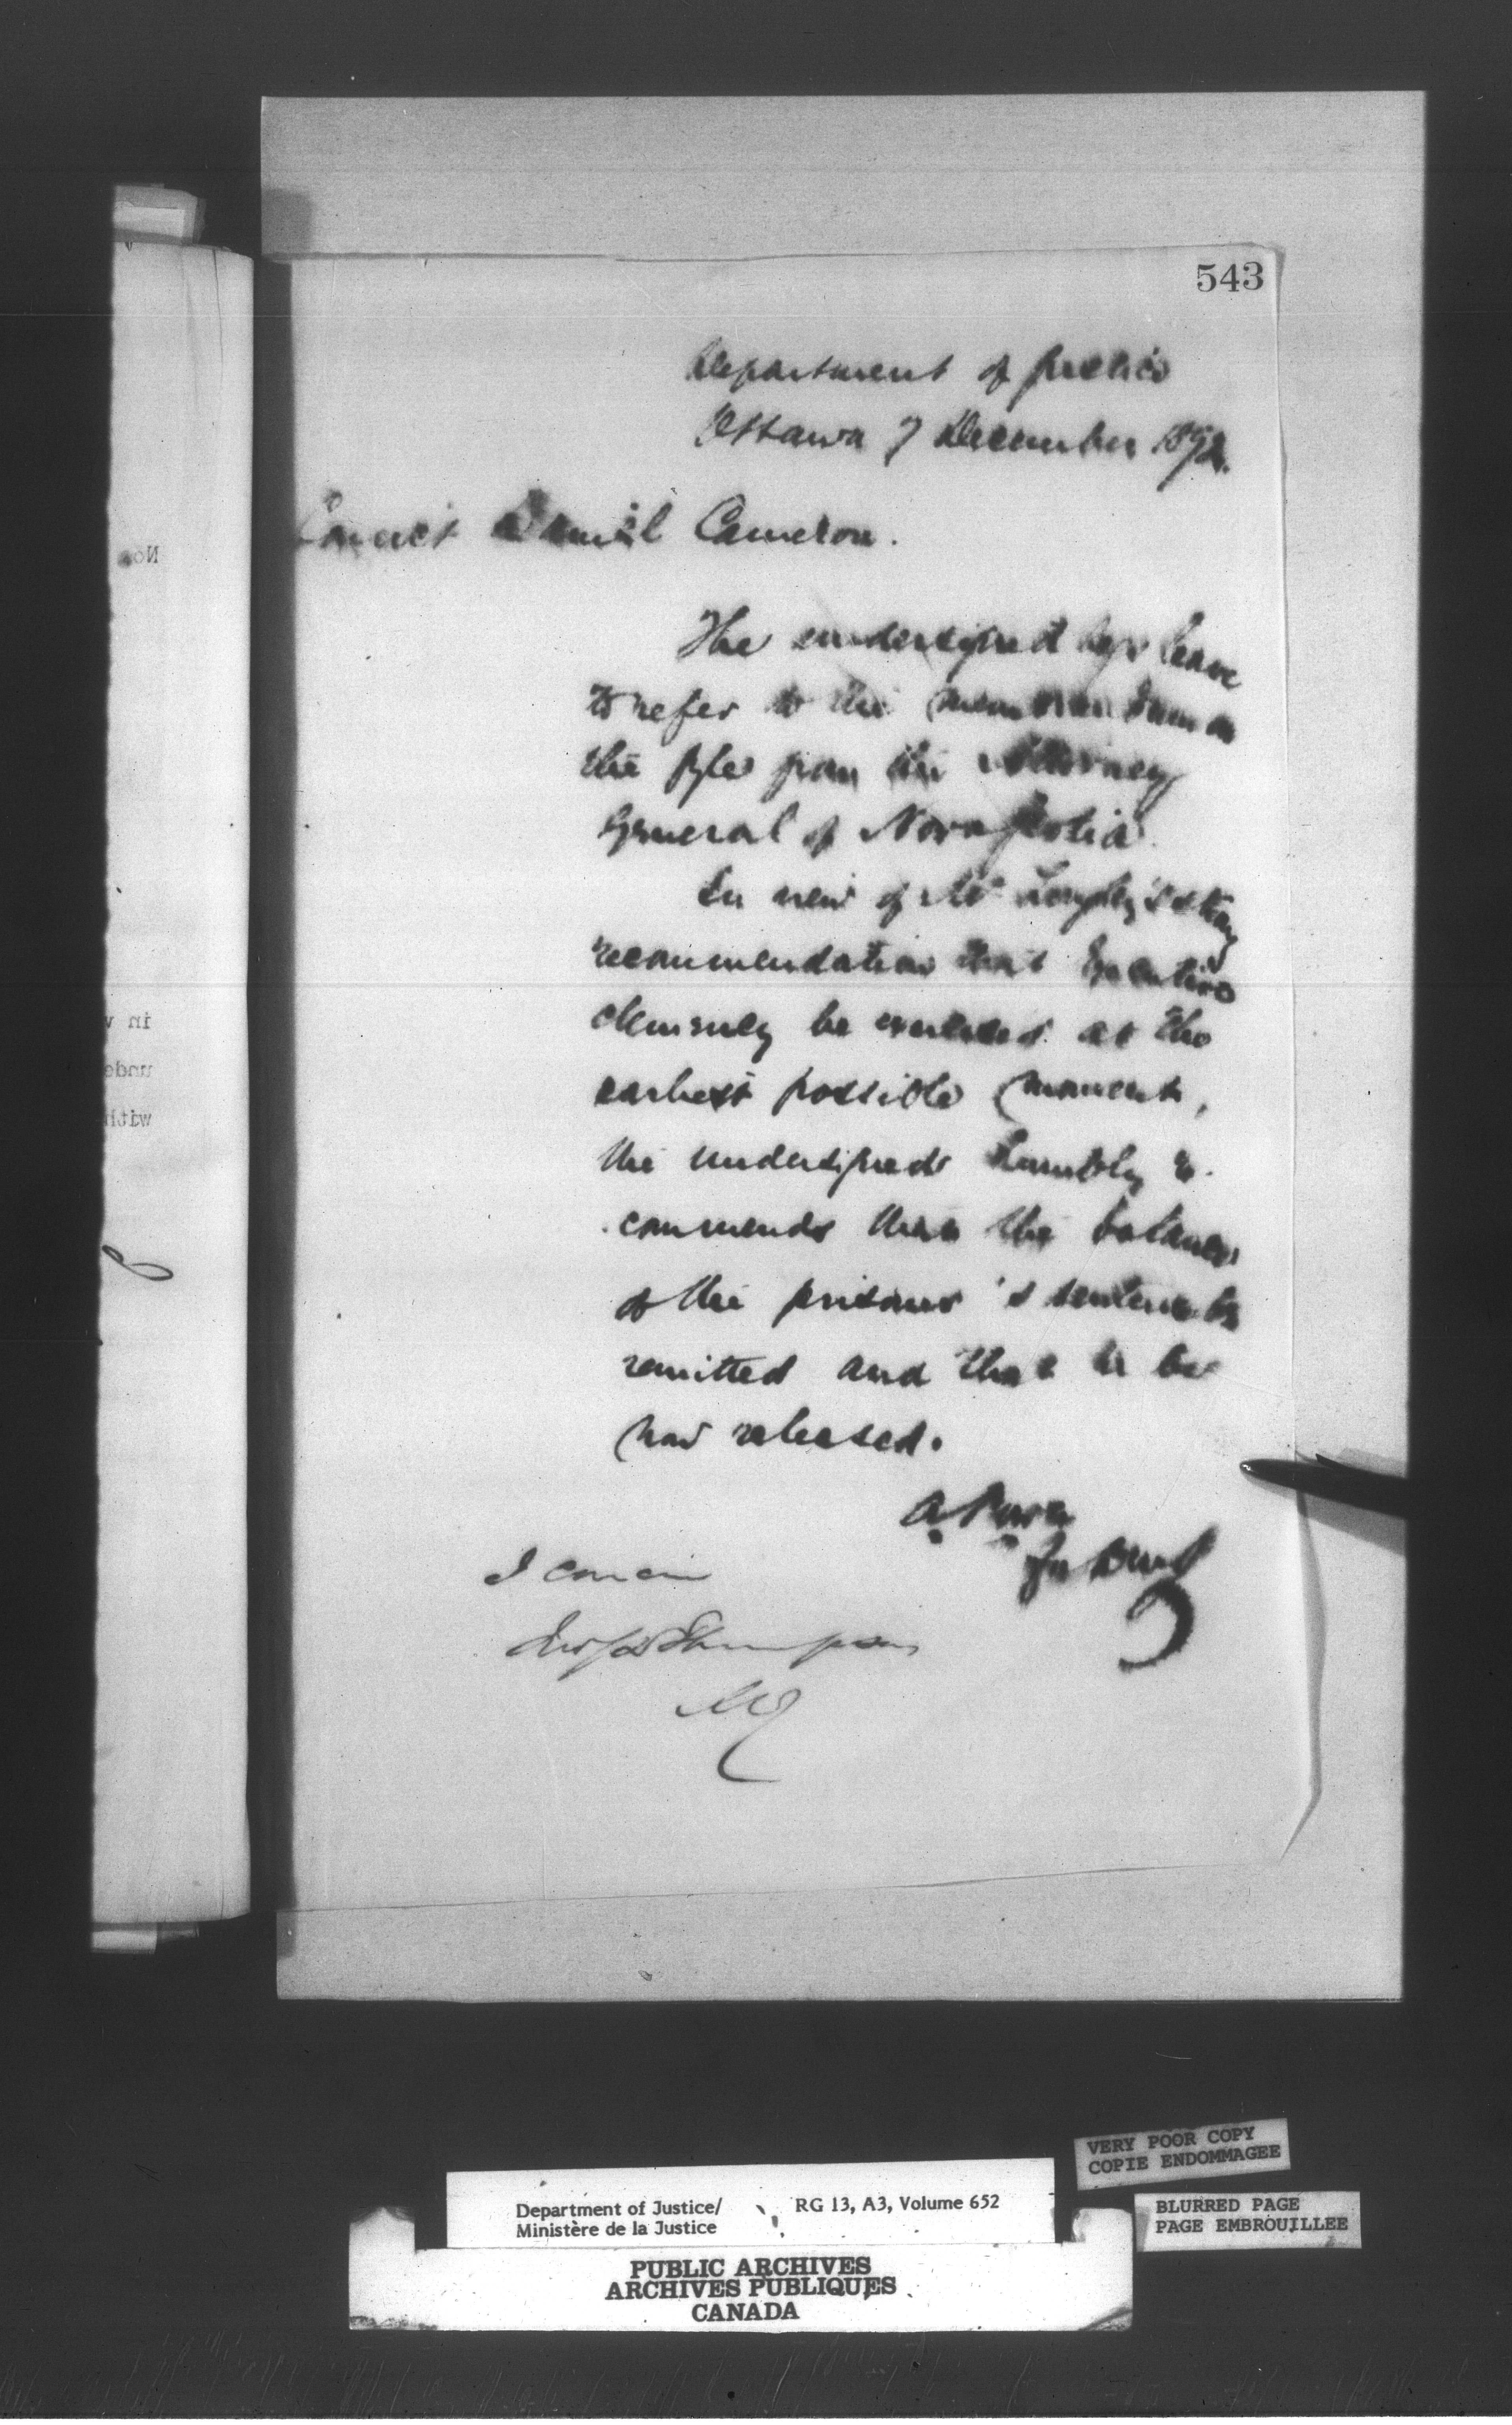 543
Department of Justice
Ottawa 7 December 1892.
Convict Daniel Cameron.
The undersigned begs leave
to refer to the memorandum on
the fyle from the Attorney
General of Nova Scotia.
In view of Mr Longley's strong
recommendation that Executive
clemency be exercised at the
earliest possible moment,
the undersigned humbly re-
commends that the balance
of the prisoner's sentence be
remitted and that he be
now released.
A. Power
for D M J
I concur
Jno S D Thompson
MJ
No.
in v
unde
with
VERY POOR COPY
COPIE ENDOMMAGEE
Department of Justice/ RG 13, A3, Volume 652
Ministère de la Justice
BLURRED PAGE
PAGE EMBROUILLEE
PUBLIC ARCHIVES
ARCHIVES PUBLIQUES
CANADA